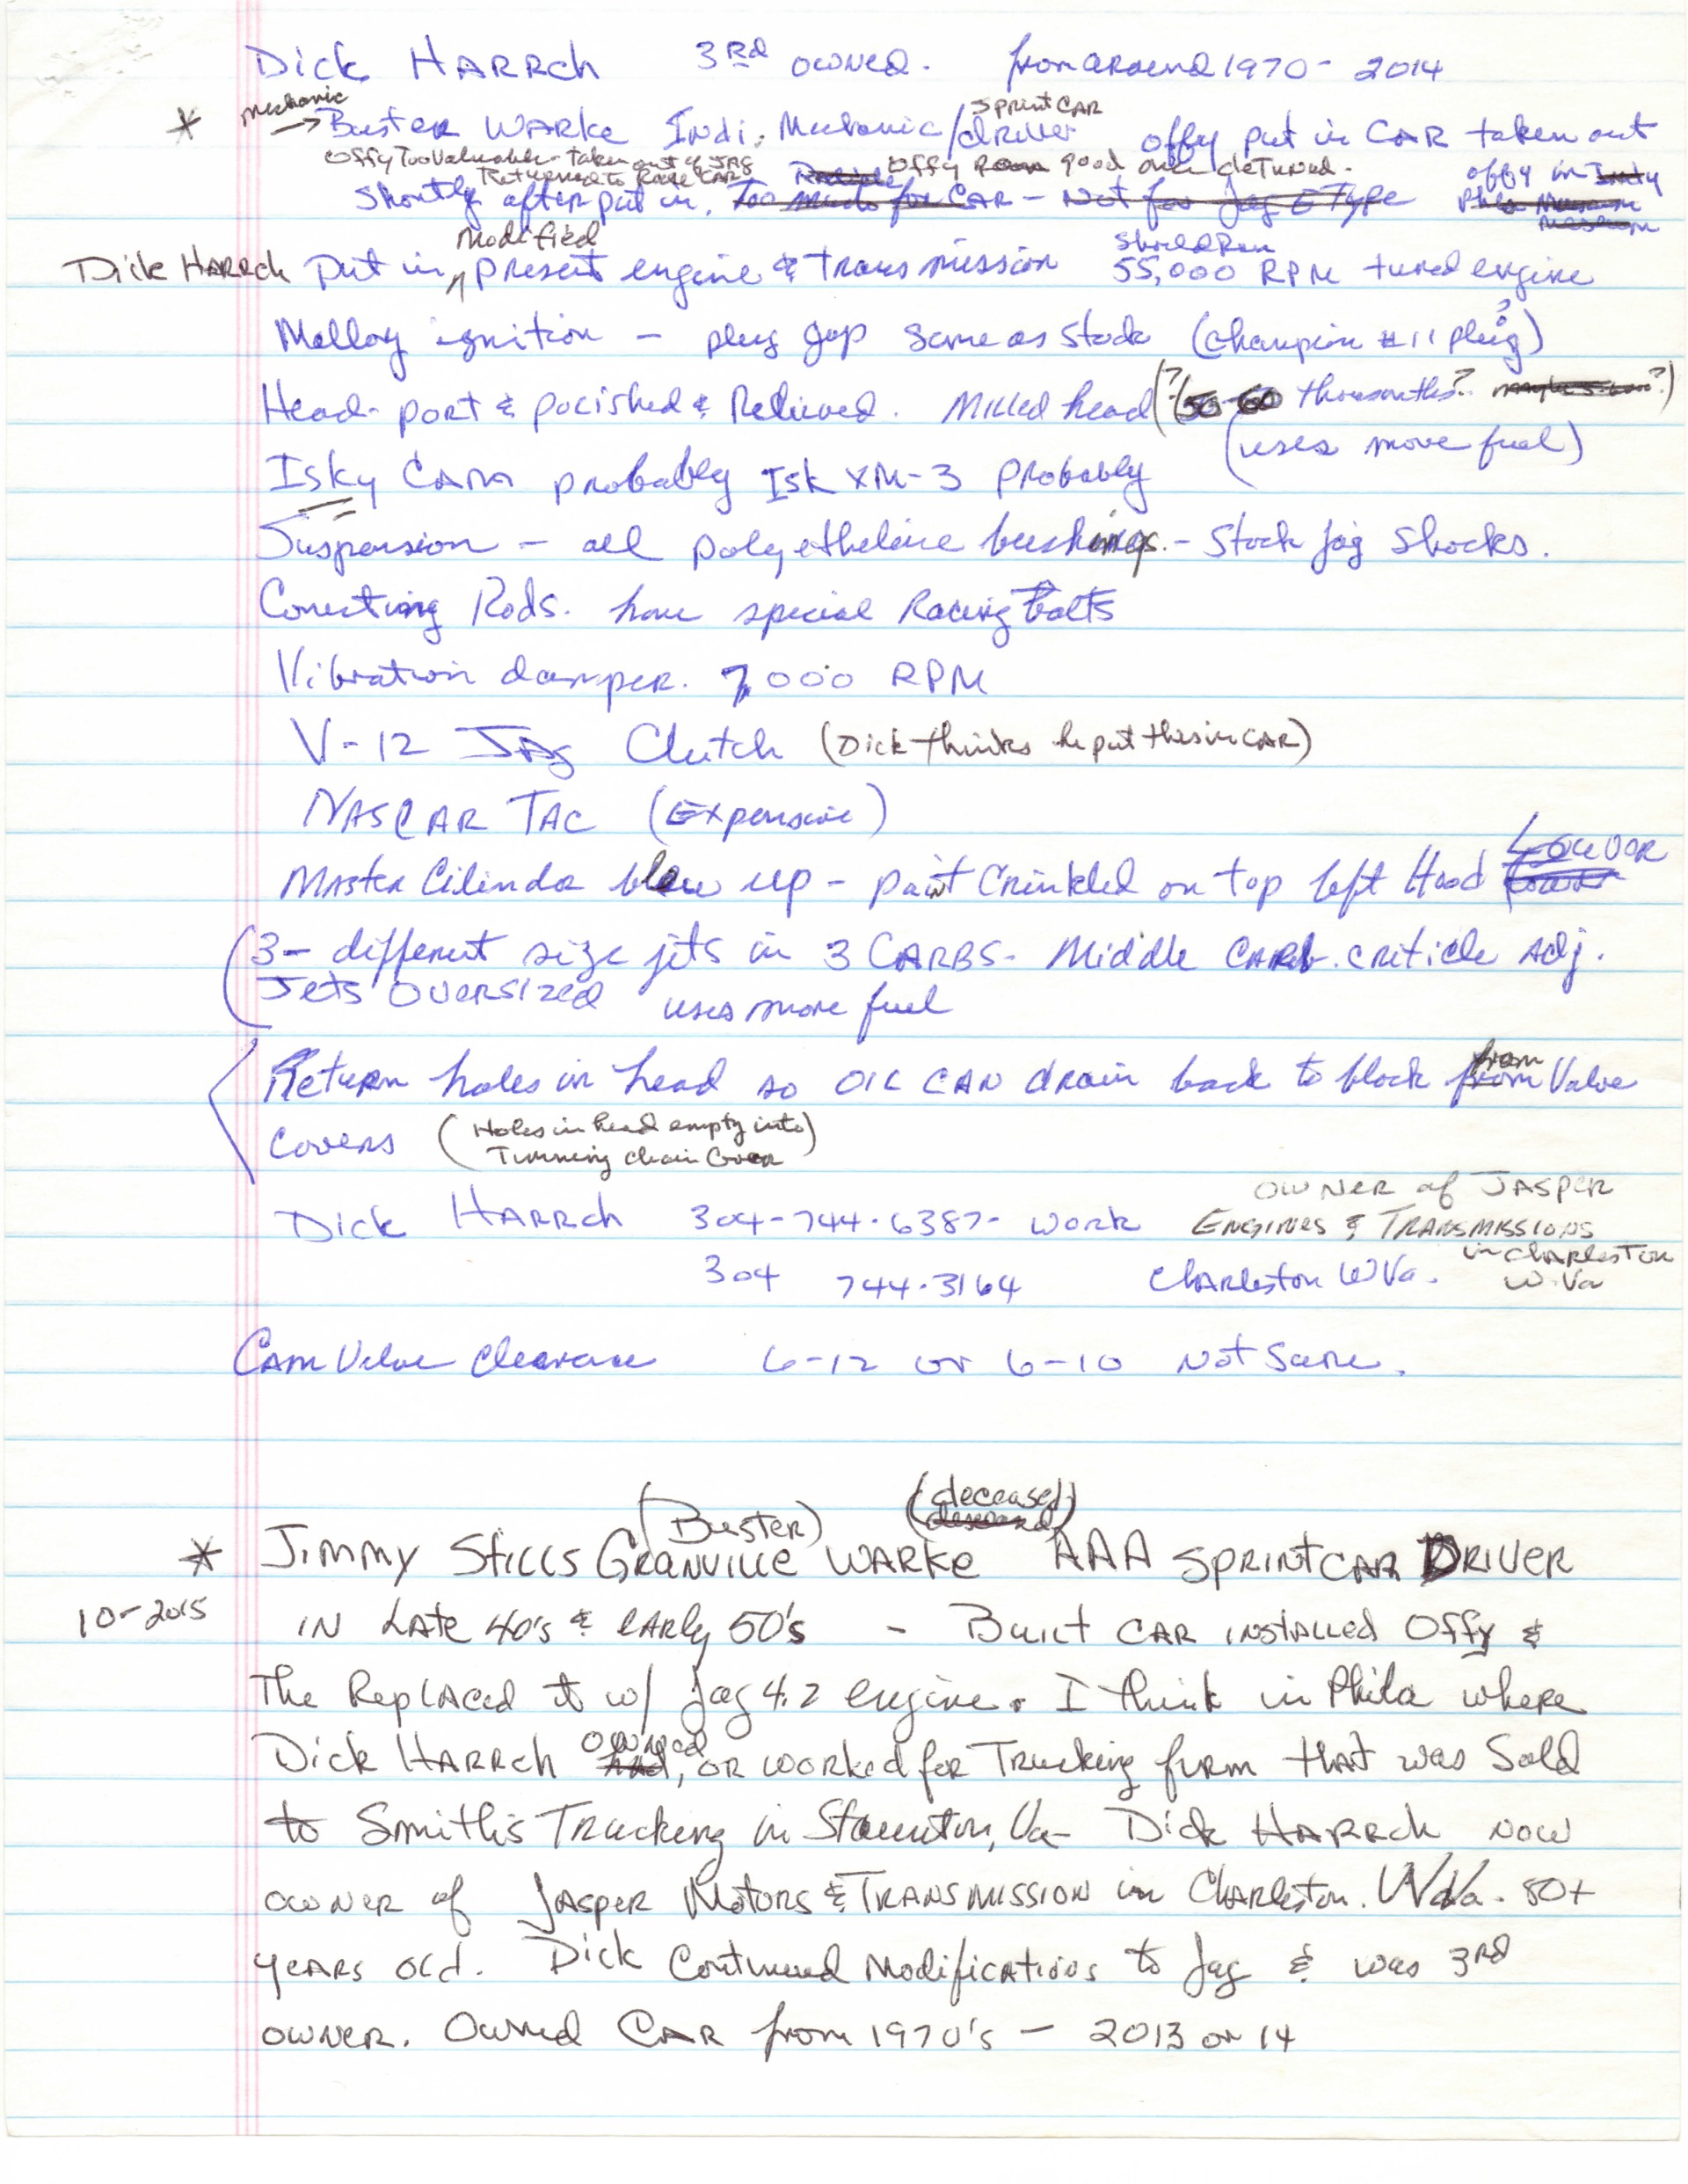 Dick HARRch 3RD owned. from around 1970- 2014
mechanic
* → Buster WARKe Indi. Mechanic/driver offy put in CAR taken out
SprintCAR
Offy Too Valuable- taken out of JAG Offy Ran good over detuned.
Returned to Race CARS
Shortly after put in. Too much for CAR - Not for Jag E Type offy in Indy
Phila Museum
Museum
Modified
Dick HARRch put in present engine & transmission 55,000 RPM tuned engine
Should Run
Mallory ignition - plug gap same as stock (Champion #11 plug?)
Head- port & polished & Relieved. Milled head (?(50-60 thousanths? ?)
(uses more fuel)
Isky CAM probably Isk XM-3 Probably
Suspension - all polyetheline bushings.- Stock Jag Shocks.
Conecting Rods. have special Racing Bolts
Vibration damper. 7,000 RPM
V-12 JAG Clutch (Dick thinks he put this in CAR)
NASCAR TAC (Expensive)
Master Cilinder blew up - paint Crinkled on top left Hood Louvor
(3- different size jets in 3 CARBS- Middle CARb. criticle Adj.
Jets Oversized uses more fuel
Return holes in head so OIL CAN drain back to block from Valve
from
Covers (Holes in head empty into)
Timming chain Cover
Dick HARRch 304-744-6387- work OWNER of JASPER
ENGINES & TRANSMISSIONS
in Charleston
W.Va
304 744-3164 Charleston WVa.
CAM Valve Clearance 6-12 or 6-10 Not Same.
(Buster) (deceased)
* Jimmy Stills GRANVILLE WARKe AAA SPRINT CAR DRIVER
10-2015 IN LATE 40's & EARLy 50's - Built CAR INSTALLED Offy &
The Replaced it w/ Jag 4.2 engine. I think in Phila where
Dick HARRch owned had, OR worked for Trucking firm that was Sold
to Smith's Trucking in Staunton, Va- Dick HARRch now
owner of JASPER Motors & TRANSMISSION in Charleston. W.Va. 80+
years old. Dick Continued Modifications to Jag & was 3rd
owner. Owned CAR from 1970's - 2013 or 14